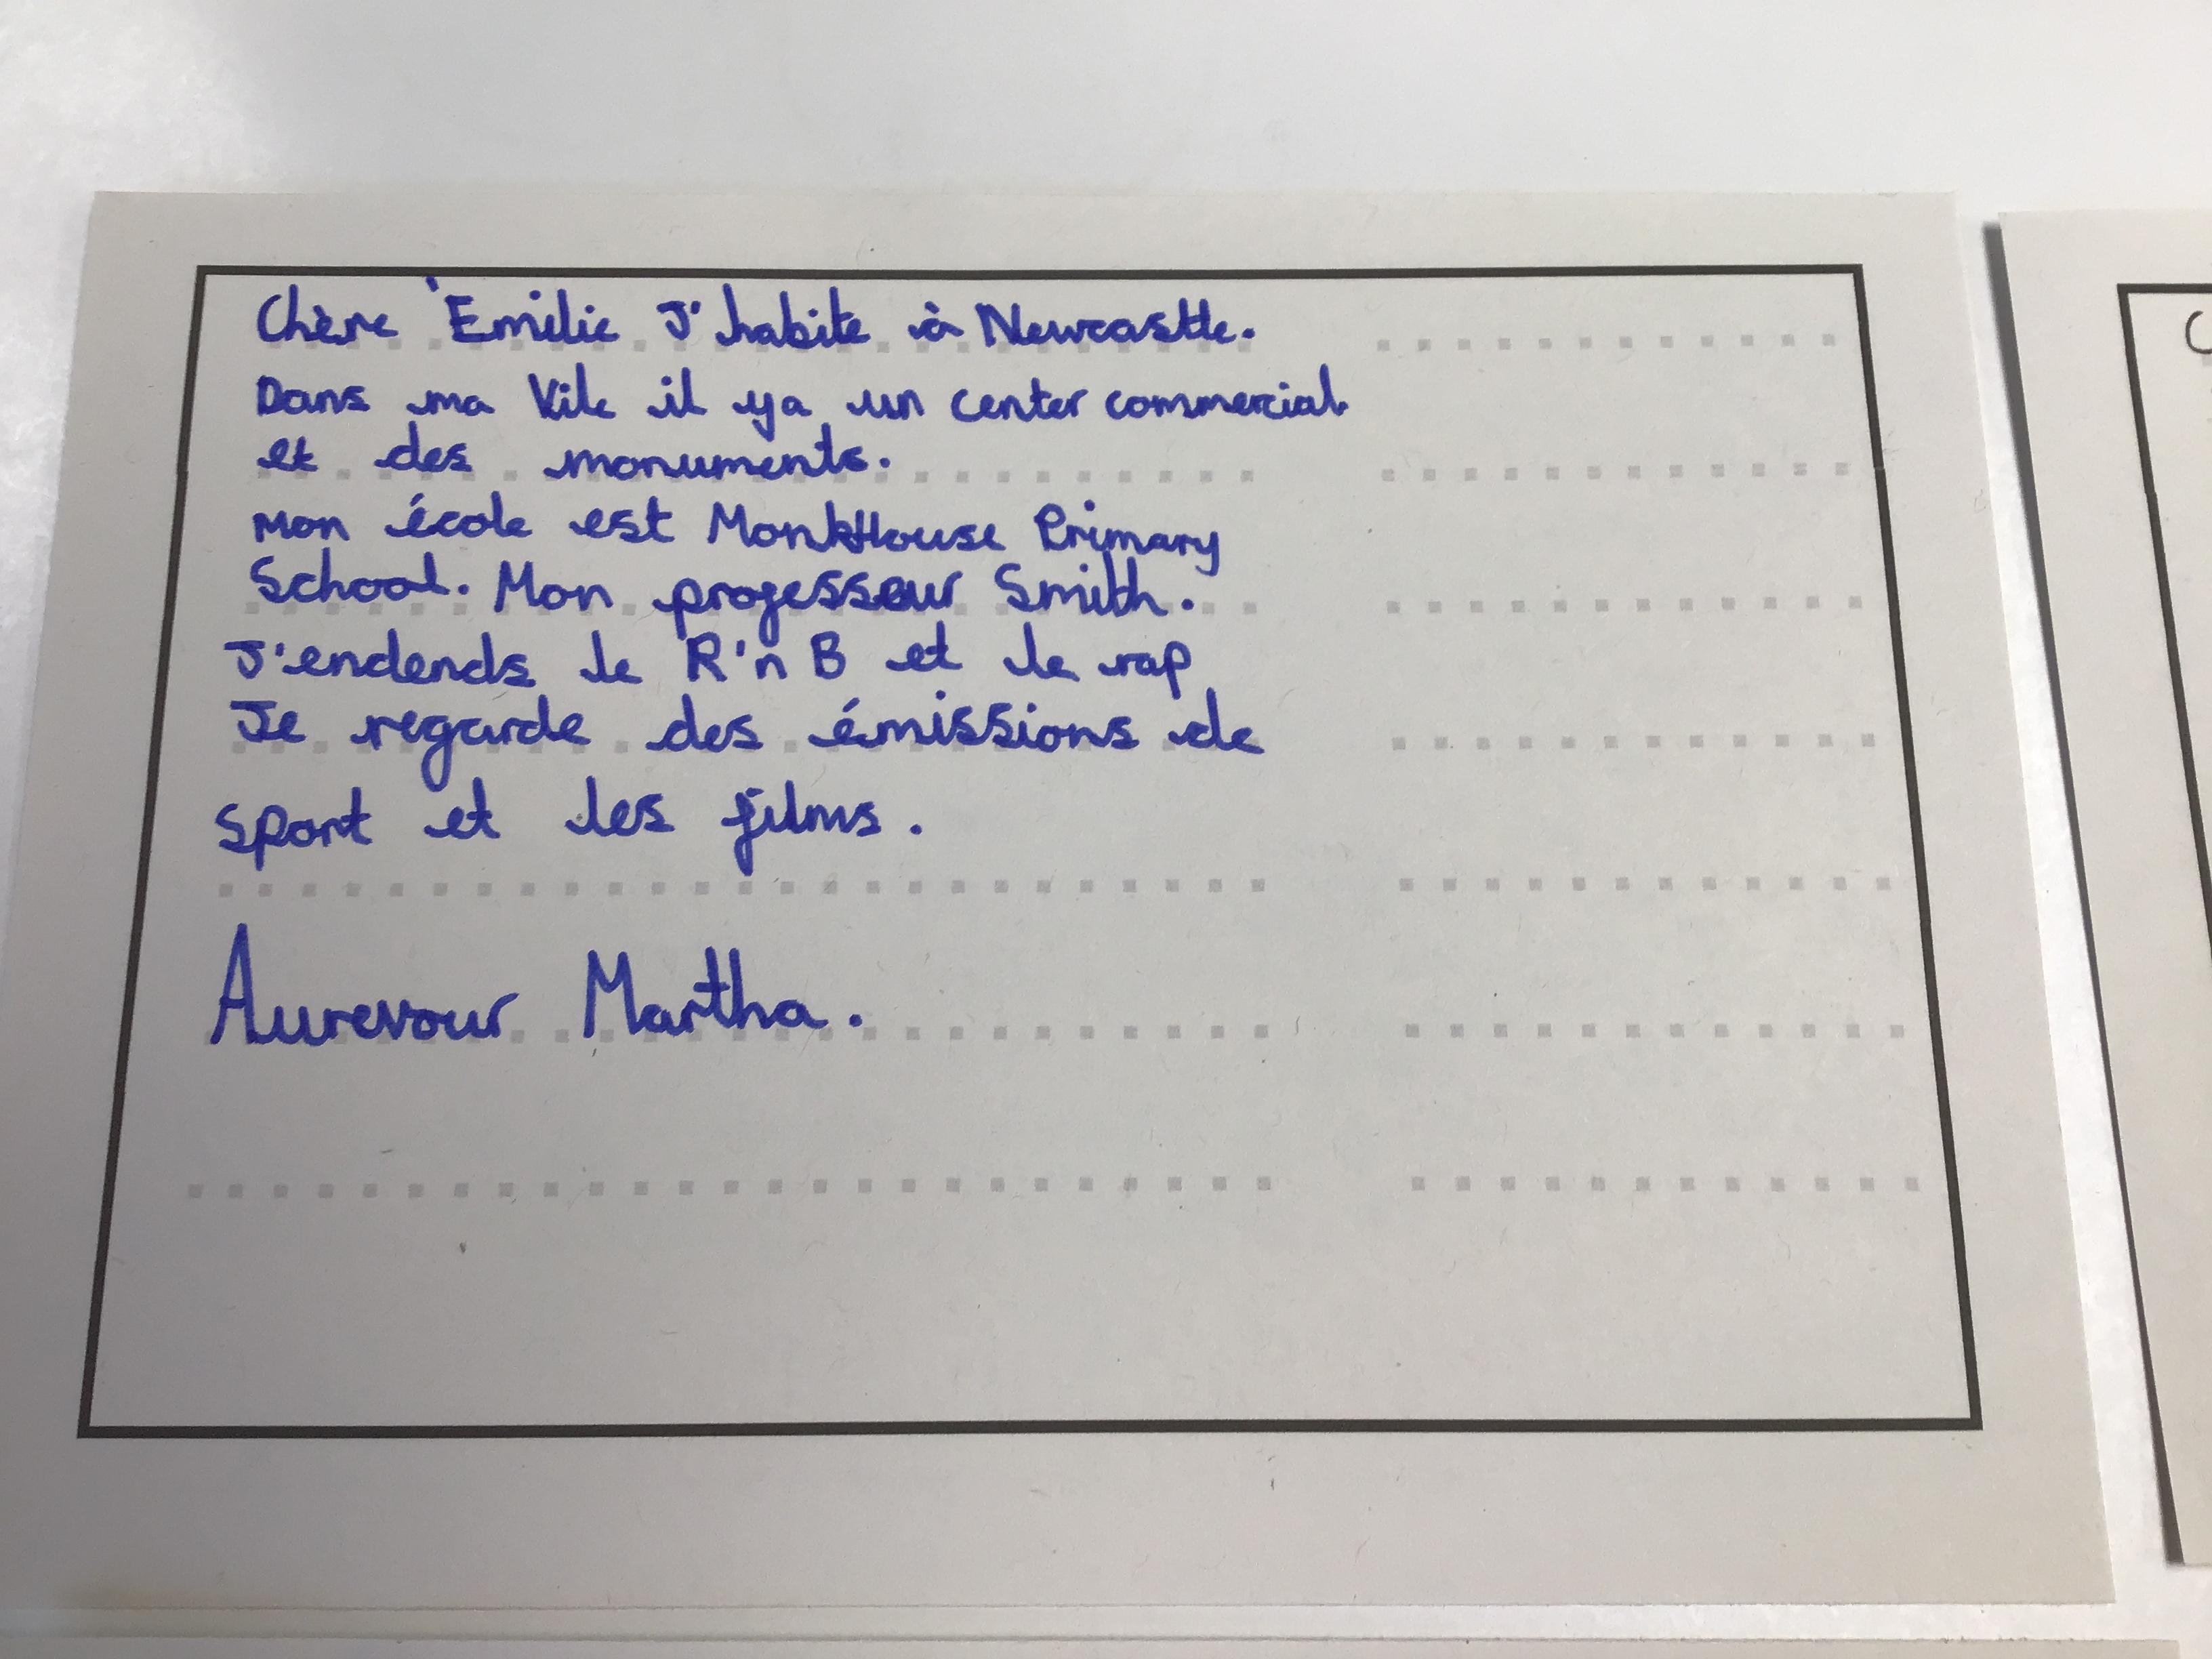 Chère Èmilie J'habite à Newcastle.
Dans ma Vile il ya un center commercial
et des monuments.
Mon école est MonkHouse Primary
School. Mon professeur Smith.
J'endends le R'n B et le rap
Je regarde des émissions de
sport et les films.
Aurevour Martha.
C